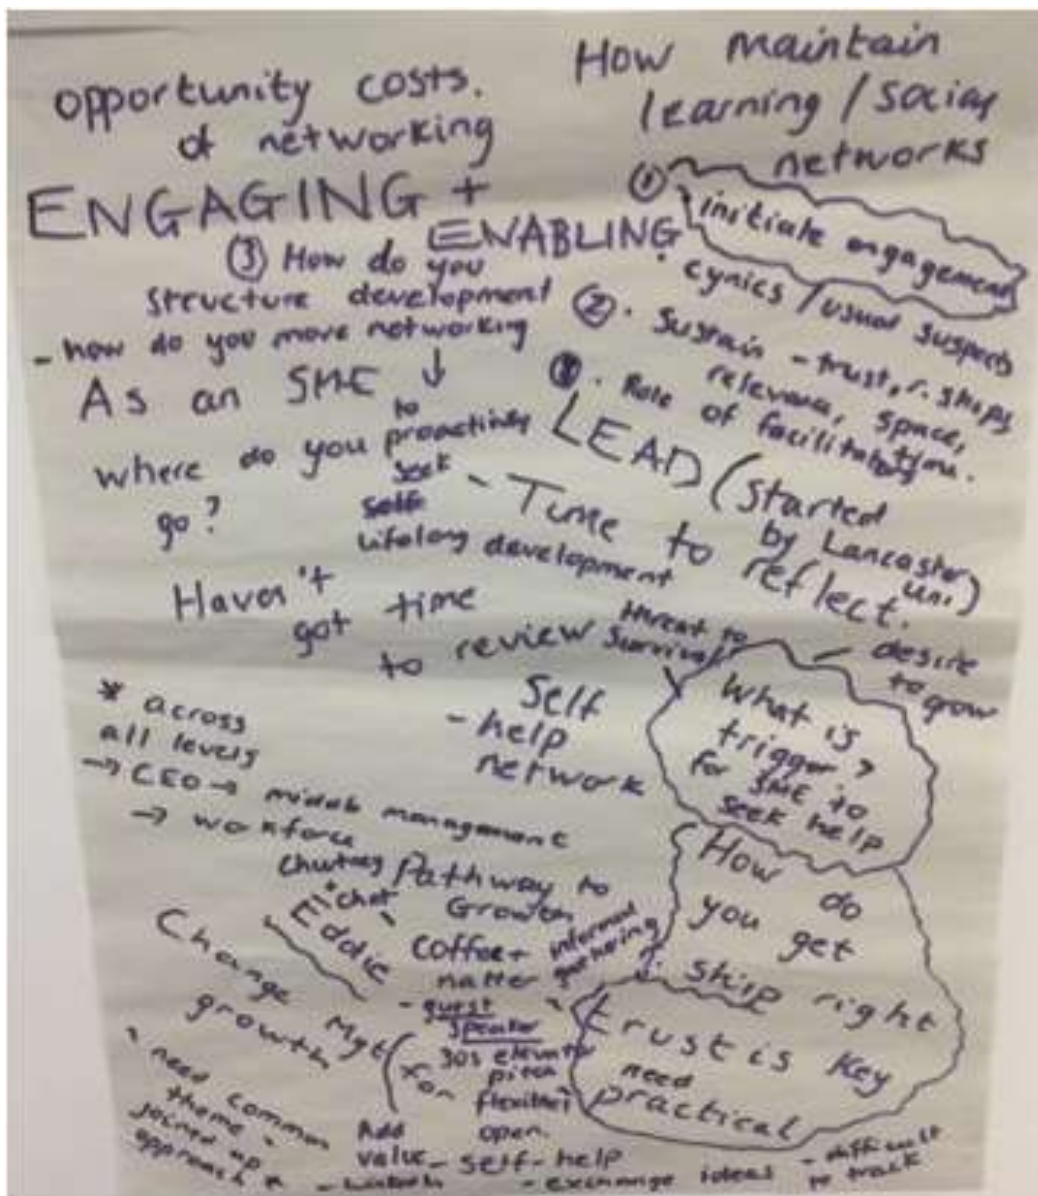 opportunity costs.
of networking
How maintain
learning / social
networks
ENGAGING +
ENABLING
① initiate engagement
· cynics / usual suspects
② · Sustain - trust, r.ships
relevance, space,
time.
③ · Role of facilitator
③ How do you
structure development
- how do you more networking
As an SME ↓
where do you
go?
to
proactively
seek
self
lifelong development
LEAD (started
by Lancaster
Uni)
- Time to reflect.
Haven't
got time
to review
Self
- help
network
threat to
survival
desire
to grow
What is
trigger?
for SME to
seek help
How do
you get
r.ship right
trust is key
need
practical
* across
all levels
→ CEO → middle management
→ workforce
Pathway to
Growth
Eddie
"chat
- coffee +
natter
informal
gathering
- guest
speaker
30s elevator
pitch
flexible
open.
Change Mgt
growth
- need common
theme -
joined up
approach
Add
value - self-help
- exchange ideas
- difficult
to track